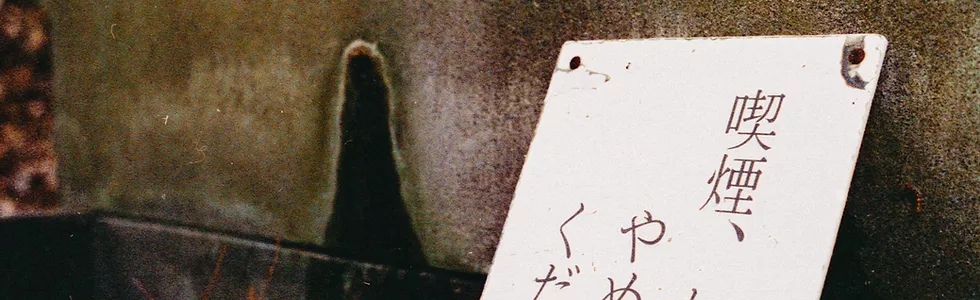 喫煙、
やめ
くだ